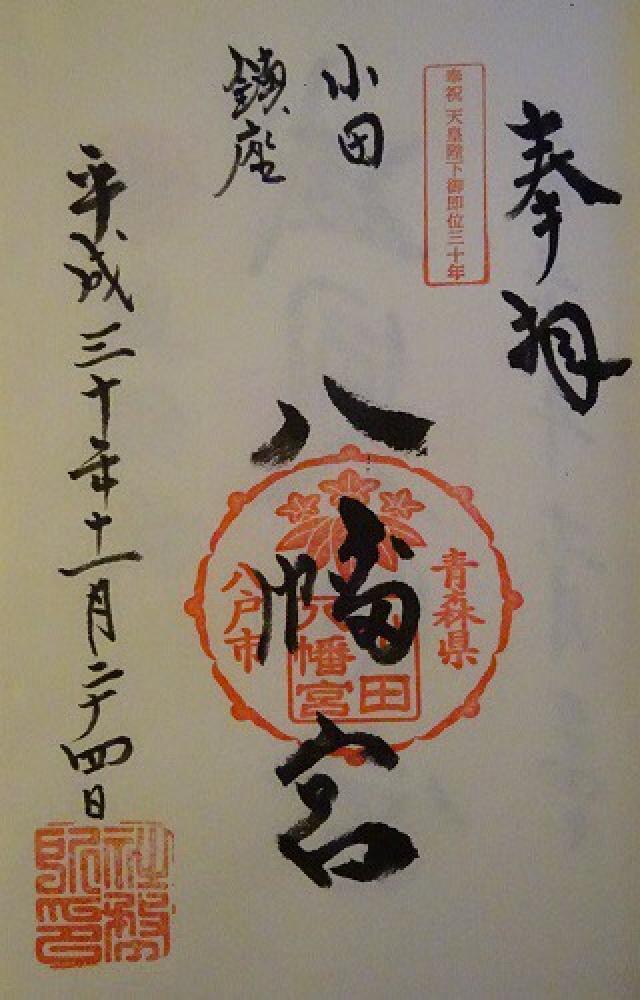 奉拝
奉祝 天皇陛下御即位三十年
小田
鎮座
八幡宮
青森県
八戸市
小田
八幡宮
平成三十年十一月二十四日
社務所印